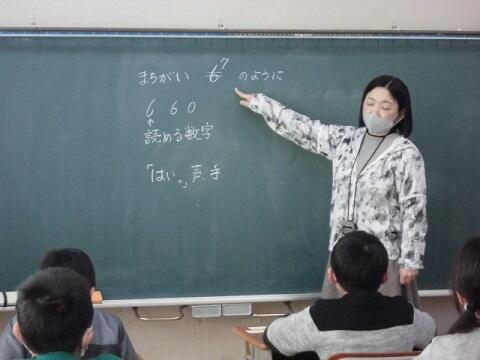 まちがい 6 7 のように
6 6 0
↑
読める数字
「はい。」声、手